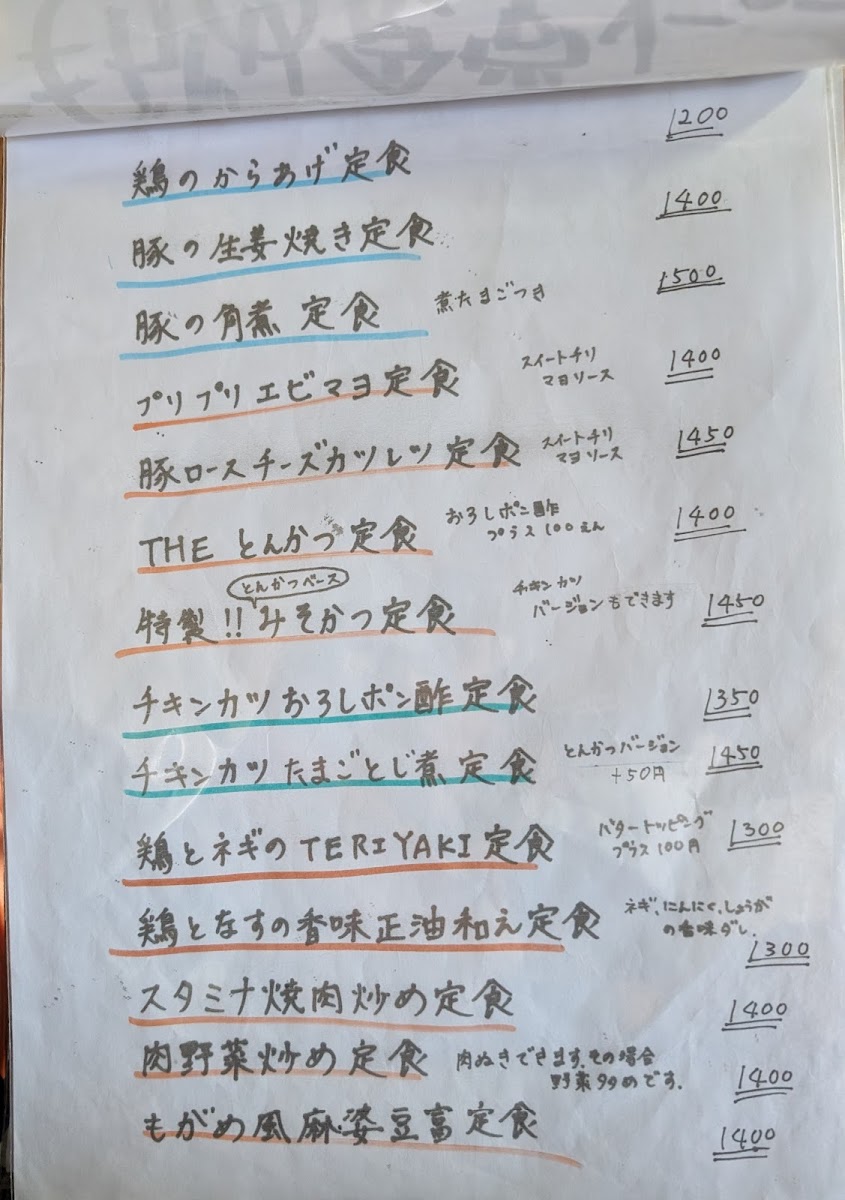 鶏のからあげ定食 1200
豚の生姜焼き定食 1400
豚の角煮 定食 煮たまごつき 1500
プリプリエビマヨ定食 スイートチリ マヨソース 1400
豚ロースチーズカツレツ定食 スイートチリ マヨソース 1450
THE とんかつ定食 おろしポン酢 プラス100えん 1400
とんかつベース
特製!!みそかつ定食 チキンカツ バージョンもできます 1450
チキンカツおろしポン酢定食 1350
チキンカツたまごとじ煮定食 とんかつバージョン +50円 1450
鶏とネギのTERIYAKI定食 バタートッピング プラス100円 1300
鶏となすの香味正油和え定食 ネギ、にんにく、しょうが の香味ダレ. 1300
スタミナ焼肉炒め定食 1400
肉野菜炒め定食 肉ぬきできます.その場合 野菜多めです. 1400
もがめ風麻婆豆富定食 1400